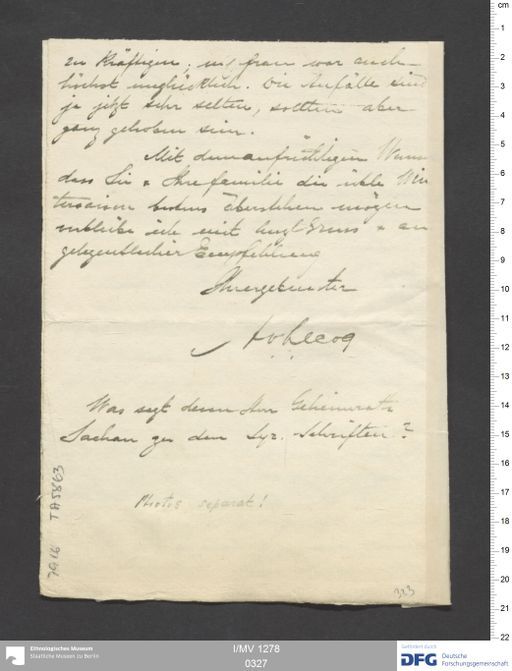 zu kräftigen; m/ frau war auch
höchst unglücklich. Die Anfälle sind
ja jetzt sehr selten, sollten aber
ganz gehoben sein.
Mit dem aufrichtigen Wuns
dass Sie & Ihre familie die üble Win
tersaison bestens überstehen mögen
verbleibe ich mit herzl Gruss & an
gelegentlicher Empfehlung
Ihr ergebenster
AvLecoq
Was sagt denn Herr Geheimrath
Sachau zu den Syr. Schriften?
Photos separat!
TA5863
323
Ethnologisches Museum
Staatliche Museen zu Berlin
I/MV 1278
0327
Gefördert durch
DFG Deutsche
Forschungsgemeinschaft
cm
1
2
3
4
5
6
7
8
9
10
11
12
13
14
15
16
17
18
19
20
21
22